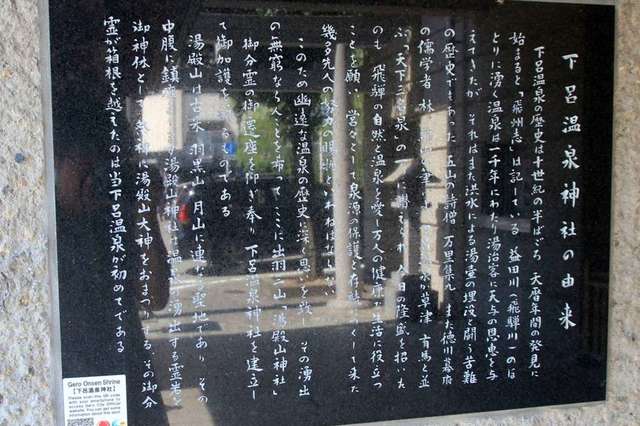 下呂温泉神社の由来
下呂温泉の歴史は十世紀の半ばごろ 天暦年間の発見に
始まると「飛州志」は記している 益田川（飛騨川）のほ
とりに湧く温泉は一千年にわたり湯治客に天与の恩恵を与
えてきたが それはまた洪水による湯壷の埋没と闘う苦難
の歴史でもあった 五山の詩僧 万里集九 また徳川幕府
の儒学者 林 が草津 有馬と並
ぶ「天下三名泉」の一 今日の隆盛を招いた
のも 飛騨の自然と温泉を愛し万人の健康 生活に役立つ
ことを願い 営々として泉源の保護と 来た
幾多先人の努力の
このため幽遠な温泉の歴史に深く思いを致し その湧出
の無窮ならんことを希って ここに出羽三山「湯殿山神社」
御分霊の御遷座を仰ぎ奉り 下呂温泉神社を建立し
て御加護を のである
湯殿山は古来 羽黒山 月山に連なる聖地であり その
中腹に鎮 湯殿山神社は温泉の湧出する霊岩を
御神体とし 祭神に湯殿山大神をおまつりする その御分
霊が箱根を越えたのは当下呂温泉が初めてである
Gero Onsen Shrine
【下呂温泉神社】
Please scan this QR code
with your smartphone to
access Gero City Official
website. You can get some
information about this spot.